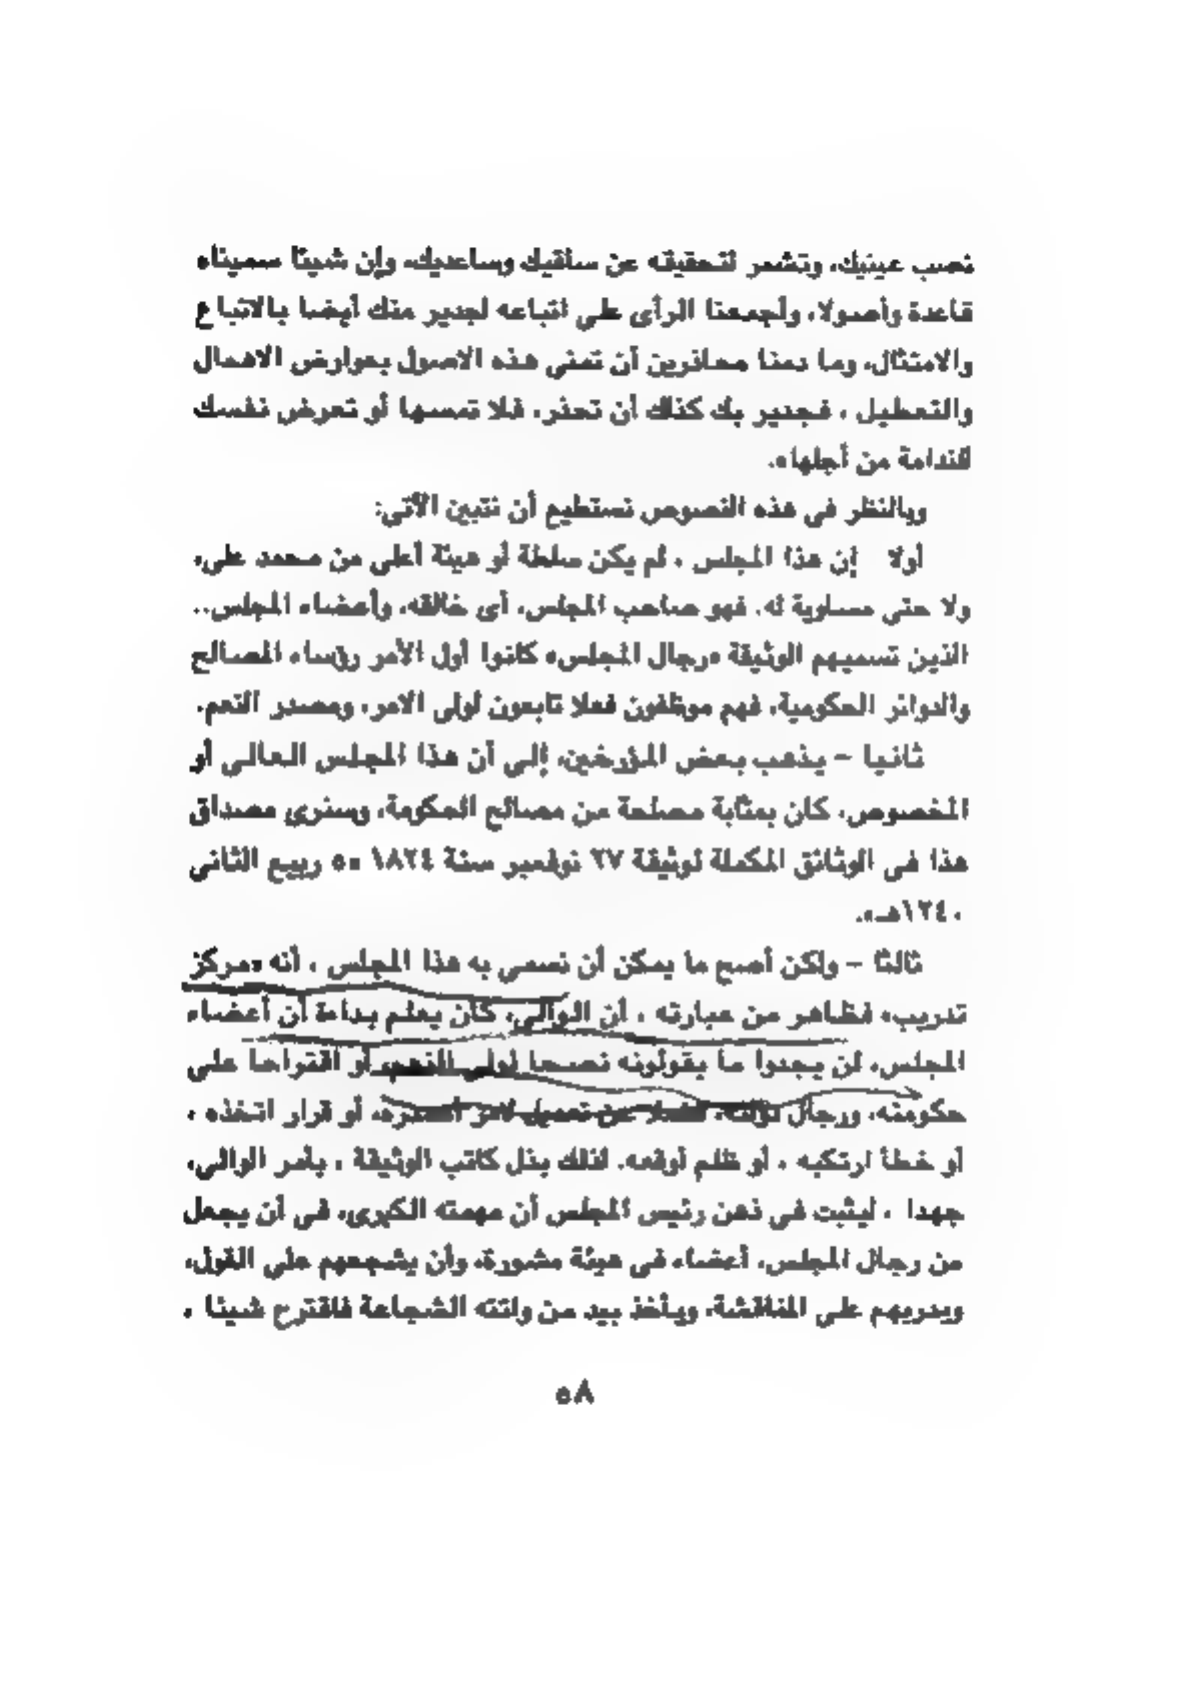 نصب عينيك، وتشمر لتحقيقه عن ساقيك وساعديك، وإن شيئا سميناه
قاعدة وأصولا، وأجمعنا الرأى على اتباعه لجدير منك أيضا بالاتباع
والامتثال، وما دمنا محاذرين أن تمنى هذه الاصول بعوارض الاهمال
والتعطيل ، فجدير بك كذلك أن تحذر، فلا تمسها أو تعرض نفسك
للندامة من أجلها».
وبالنظر فى هذه النصوص نستطيع أن نتبين الآتى:
أولا إن هذا المجلس ، لم يكن سلطة أو هيئة أعلى من محمد على،
ولا حتى مساوية له. فهو صاحب المجلس، أى خالقه، وأعضاء المجلس..
الذين تسميهم الوثيقة «رجال المجلس» كانوا أول الأمر رؤساء المصالح
والدوائر الحكومية، فهم موظفون فعلا تابعون لولى الامر، ومصدر النعم.
ثانيا – يذهب بعض المؤرخين، إلى أن هذا المجلس العالى أو
المخصوص، كان بمثابة مصلحة من مصالح الحكومة، وسنرى مصداق
هذا فى الوثائق المكملة لوثيقة ٢٧ نوفمبر سنة ١٨٢٤ «٥ ربيع الثانى
١٢٤٠هـ».
ثالثا – ولكن أصح ما يمكن أن نسمى به هذا المجلس ، أنه «مركز
تدريب» فظاهر من عبارته ، أن الوالى، كان يعلم بداءة أن أعضاء
المجلس، لن يجدوا ما يقولونه نصحا لولى النعم، أو اقتراحا على
حكومته، ورجال دولته، فضلا عن تعديل لامر أصدره، أو قرار اتخذه ،
أو خطأ ارتكبه ، أو ظلم أوقعه. لذلك بذل كاتب الوثيقة ، بأمر الوالى،
جهدا ، ليثبت فى ذهن رئيس المجلس أن مهمته الكبرى، فى أن يجعل
من رجال المجلس، أعضاء فى هيئة مشورة، وأن يشجعهم على القول،
ويدربهم على المناقشة، ويأخذ بيد من واتته الشجاعة فاقترح شيئا ،
٥٨